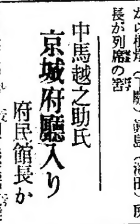 長が列席の筈
中馬越之助氏
京城府廳入り
府民館長か